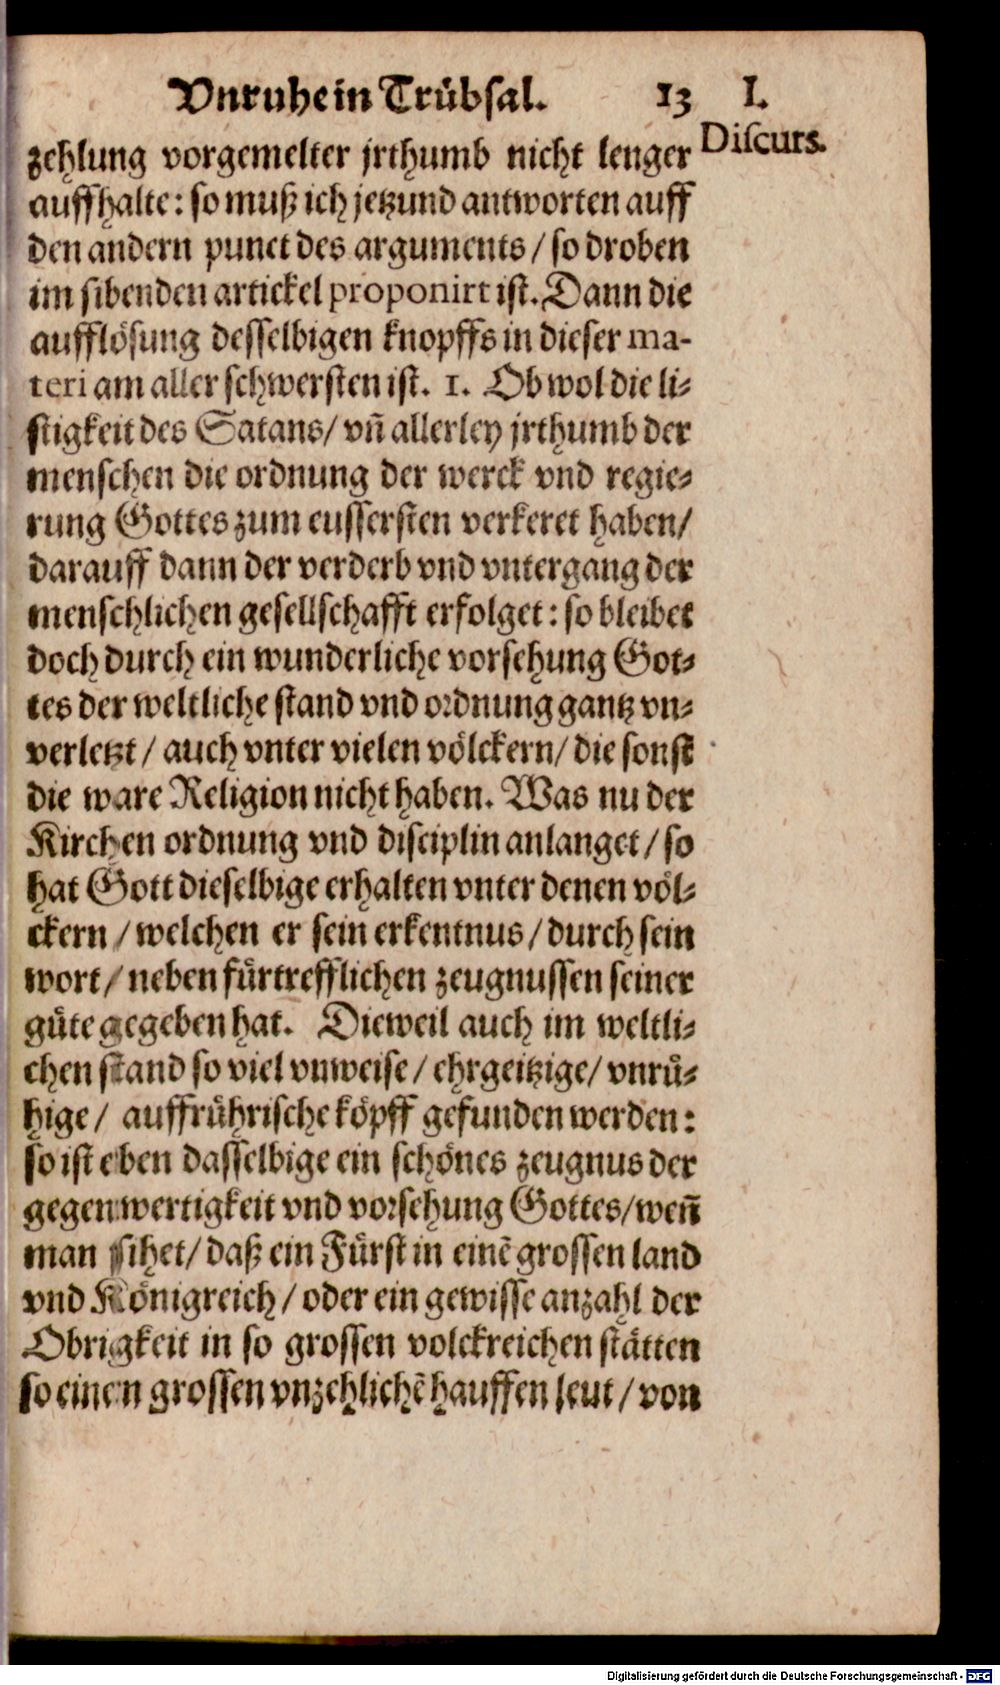 Vnruhe in Trübsal. 13 I.
Discurs.
zehlung vorgemelter jrthumb nicht lenger
auffhalte: so muß ich jetzund antworten auff
den andern punct des arguments / so droben
im sibenden artickel proponirt ist. Dann die
aufflösung desselbigen knopffs in dieser ma-
teri am aller schwersten ist. 1. Ob wol die li-
stigkeit des Satans / vñ allerley jrthumb der
menschen die ordnung der werck vnd regie-
rung Gottes zum eussersten verkeret haben /
darauff dann der verderb vnd vntergang der
menschlichen gesellschafft erfolget: so bleibet
doch durch ein wunderliche vorsehung Got-
tes der weltliche stand vnd ordnung gantz vn-
verletzt / auch vnter vielen völckern / die sonst
die ware Religion nicht haben. Was nu der
Kirchen ordnung vnd disciplin anlanget / so
hat Gott dieselbige erhalten vnter denen völ-
ckern / welchen er sein erkentnus / durch sein
wort / neben fürtrefflichen zeugnussen seiner
güte gegeben hat. Dieweil auch im weltli-
chen stand so viel vnweise / ehrgeitzige / vnrü-
hige / auffrührische köpff gefunden werden:
so ist eben dasselbige ein schönes zeugnus der
gegenwertigkeit vnd vorsehung Gottes / weñ
man sihet / daß ein Fürst in einẽ grossen land
vnd Königreich / oder ein gewisse anzahl der
Obrigkeit in so grossen volckreichen stätten
so einen grossen vnzehlichẽ hauffen leut / von
Digitalisierung gefördert durch die Deutsche Forschungsgemeinschaft - DFG